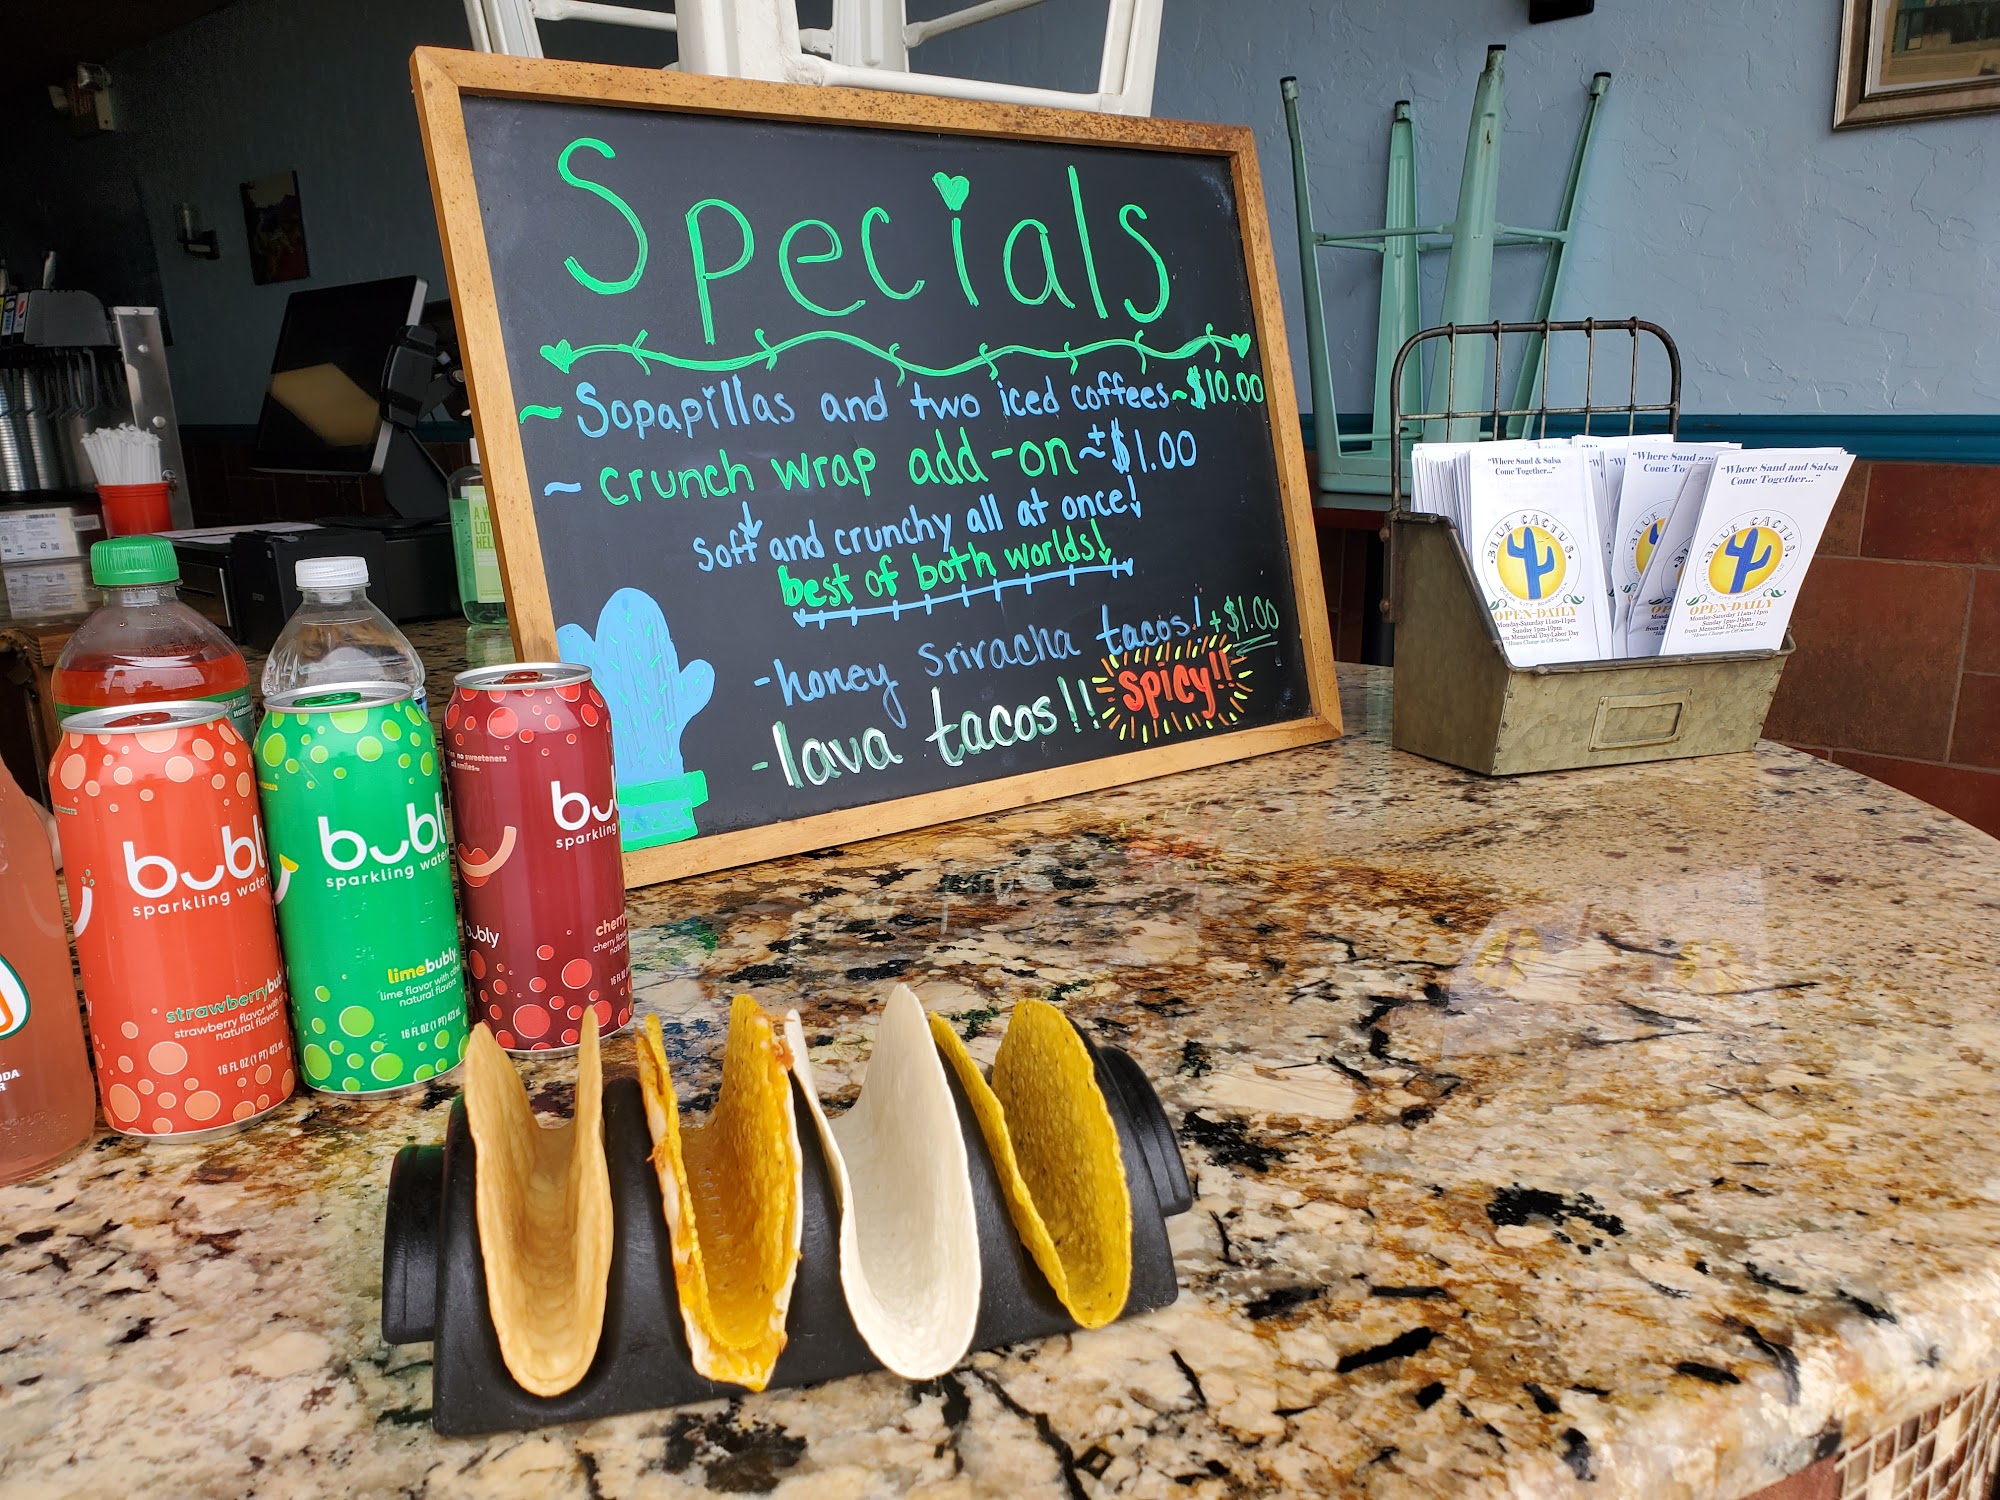 Specials
~ Sopapillas and two iced coffees ~ $10.00
~ crunch wrap add-on ~ +$1.00
soft and crunchy all at once!
best of both worlds!
- honey sriracha tacos! + $1.00
- lava tacos!! spicy!!
bubly
sparkling water
strawberrybub
strawberry flavor with
natural flavors
16 FL OZ (1 PT) 473 mL
bubl
sparkling water
limebubly
lime flavor with other
natural flavors
16 FL OZ (1 PT) 473 mL
no sweeteners
bu
sparkling
bubly
cherry
cherry flavor
natural
16 FL
"Where Sand & Salsa
Come Together..."
BLUE CACTUS
OPEN-DAILY
Monday-Saturday 11am-11pm
Sunday 1pm-10pm
from Memorial Day-Labor Day
*Hours Change in Off Season*
"Where Sand and
Come To
"Where Sand and Salsa
Come Together..."
BLUE CACTUS
OPEN-DAILY
Monday-Saturday 11am-11pm
Sunday 1pm-10pm
from Memorial Day-Labor Day